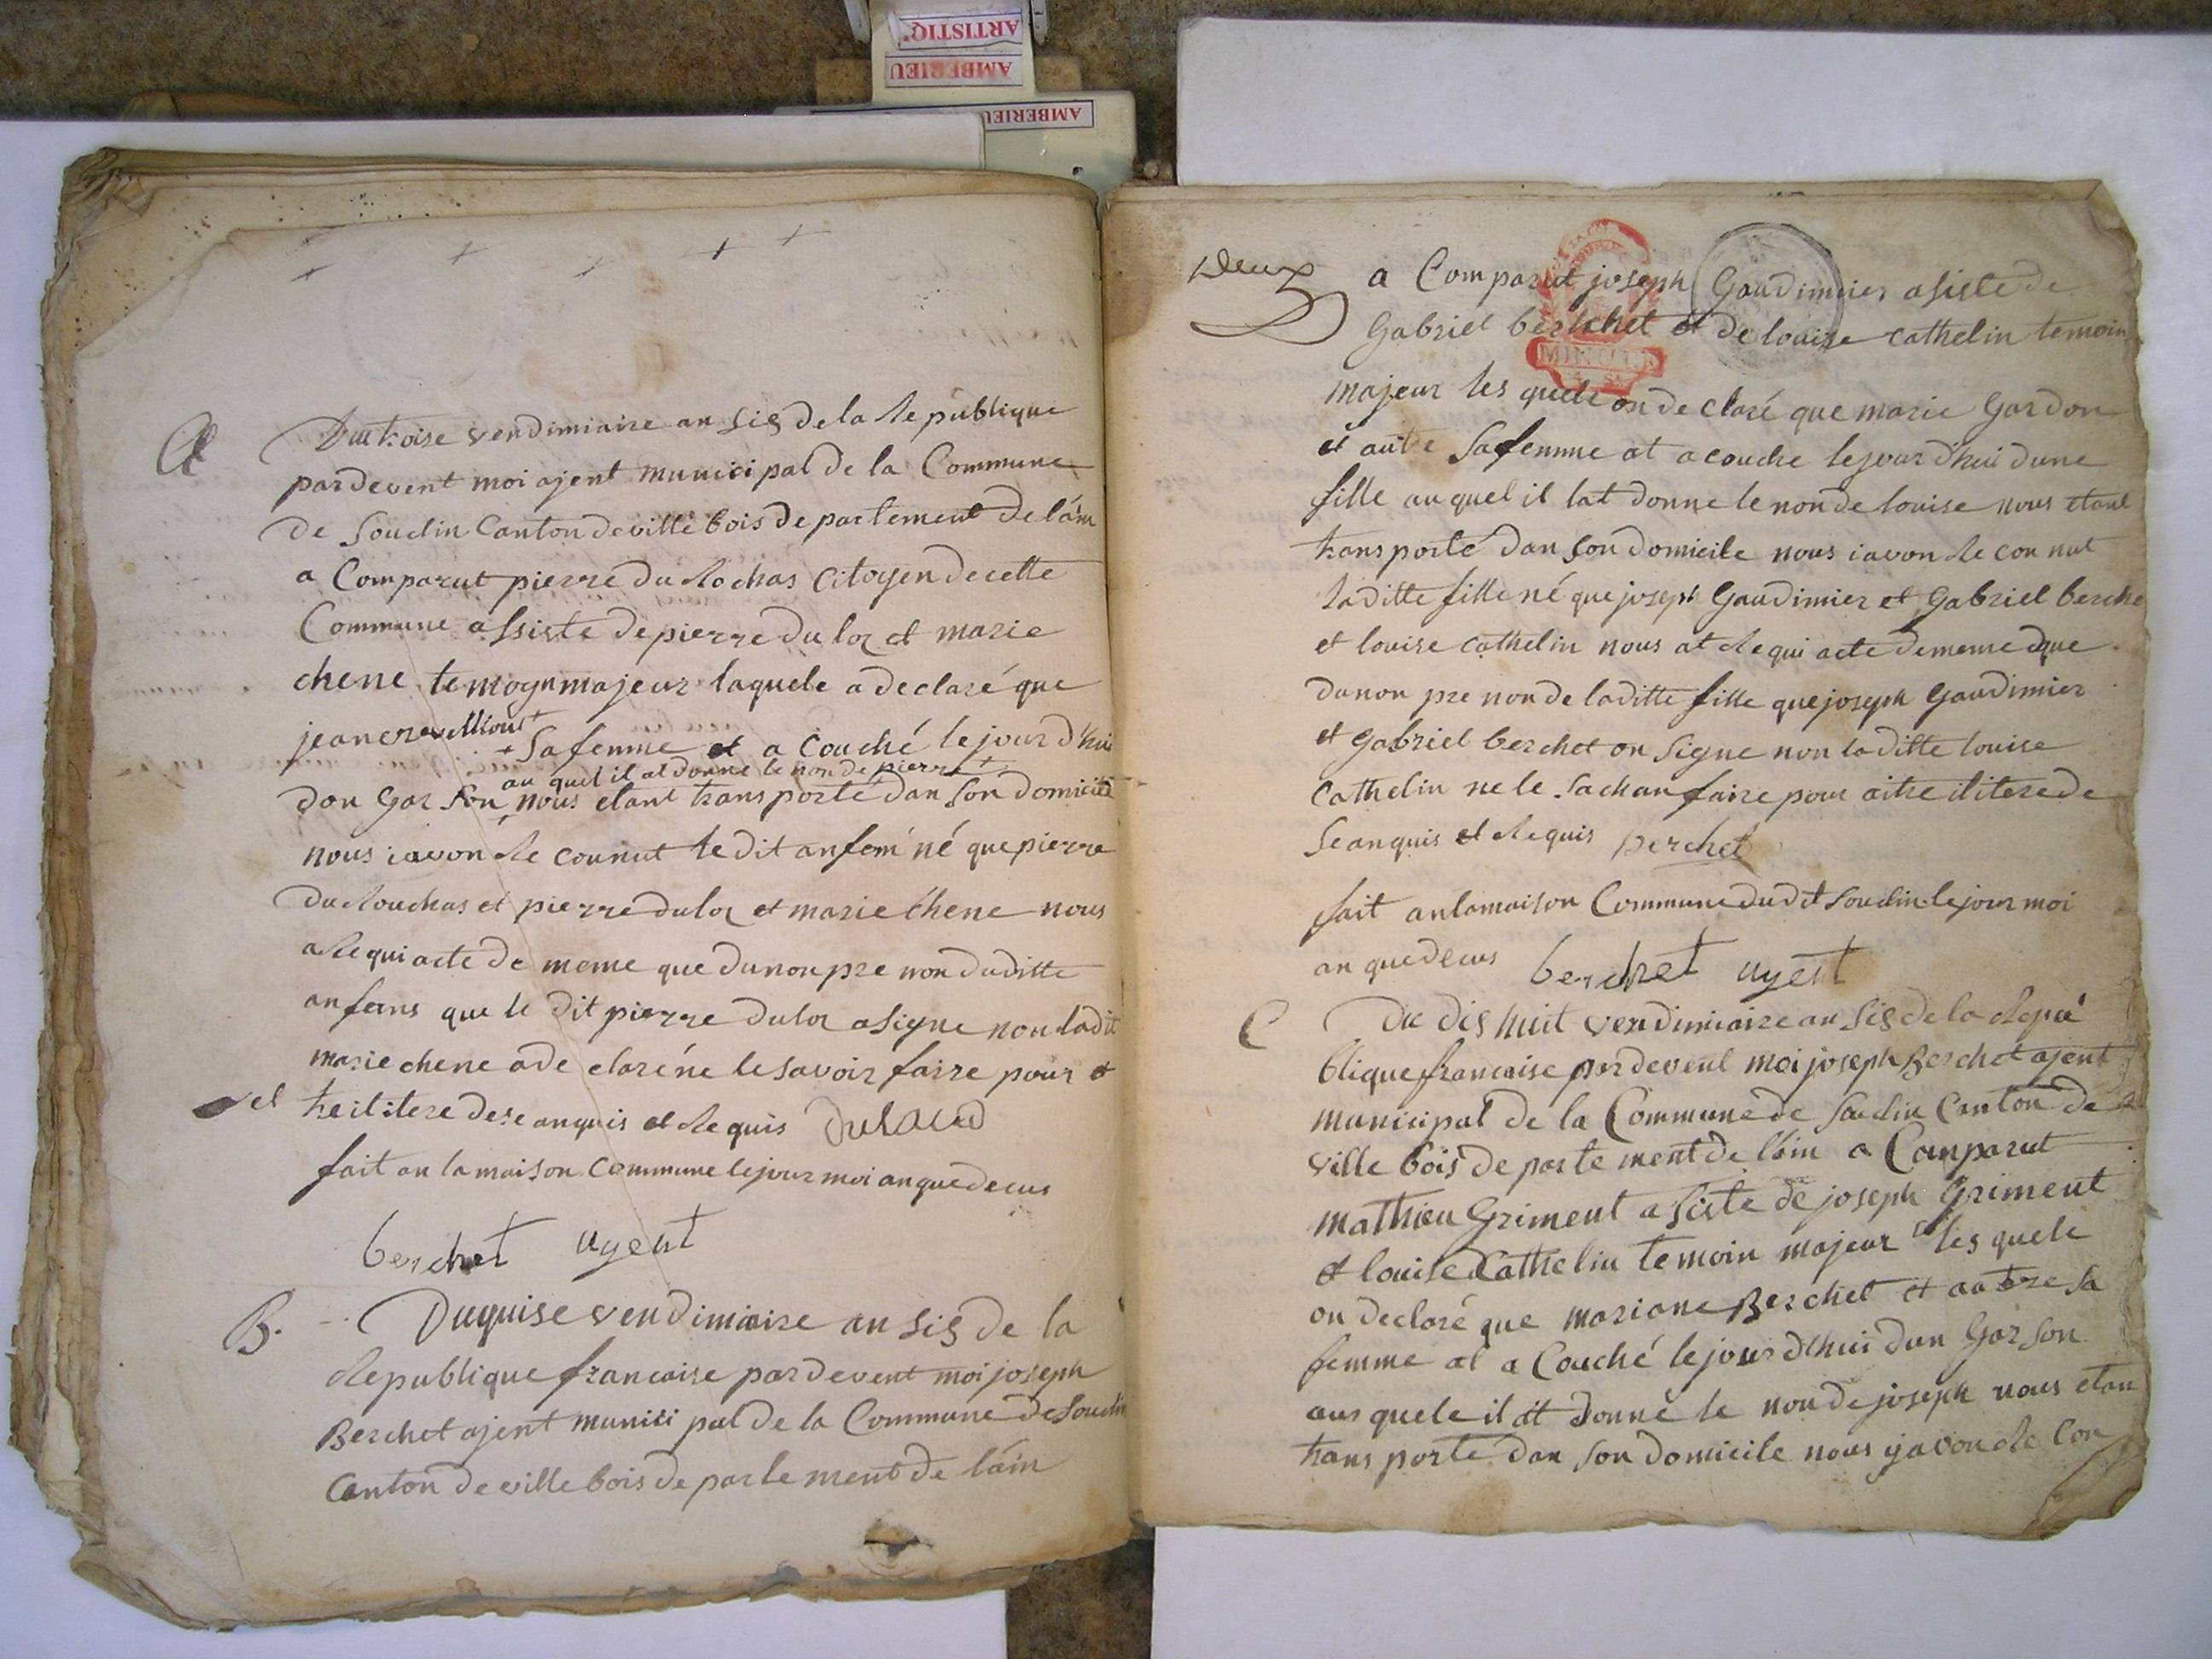 ARTISTIQ'
AMBERIEU
AMBERIEU
A
Du troise vendimiaire an sis de la Republique
pardevent moi ajent municipal de la Commune
de Soudin Canton de ville bois departement de l'áin
a Comparut pierre du Rochas Citoyen de cette
Commune assiste de pierre dulor et marie
chene temoyn majeur laquele a declaré que
jeane
+ sa femme et a Couché le jour d'hui
au quel il at donne le non de pierre +
don Garson nous etant trans porté dan son domicile
nous iavon Re connut le dit anfem né que pierre
du Rouchas et pierre dulor et marie chene nous
a Requi acte de meme que du non pre non duditte
anfans que le dit pierre dulor a signe non ladit
marie chene a de claré ne le savoir faire pour et
et treilitere de se anquis et Requis
fait an la maison Commune le jour moi an que decus
berchet agent
B.
Du quise vendimiaire an sis de la
Republique francaise pardevent moi joseph
Berchet ajent munici pal de la Commune de Soudin
Canton de ville bois de parte ment de l'áin
Deux
a Comparut joseph Gaudimier asiste de
Gabriel berchet et de louise cathelin temoin
MINUTE
majeur les quele on de claré que marie Gardon
et autre sa femme at acouche le jour d'hui dune
fille au quel il lat donne le non de louise nous etant
trans porté dan son domicile nous iavon Re con nut
laditte fille né que joseph Gaudimier et Gabriel berche
et louise cathelin nous at Requi acte de meme que
du non pre non de laditte fille que joseph Gaudimier
et Gabriel berchet on signe non laditte louise
Cathelin ne le sachan faire pour aitre ilitere de
se anquis et Requis berchet
fait an la maison Commune du dit Soudin le jour moi
an que decus berchet agent
C
Du dis huit vendimiaire an sis de la Repu
blique francaise pardevent moi joseph Berchet ajent
municipal de la Commune de Soudin Canton de
ville bois de parte ment de l'áin a Comparut
mathieu Griment a siste de joseph Griment
et louise Cathelin temoin majeur les quele
on declaré que mariane Berchet et autre sa
femme at a Couché le jour d'hui dun Garson
aus quele il at donné le non de joseph nous etan
trans porté dan son domicile nous y avon Re con